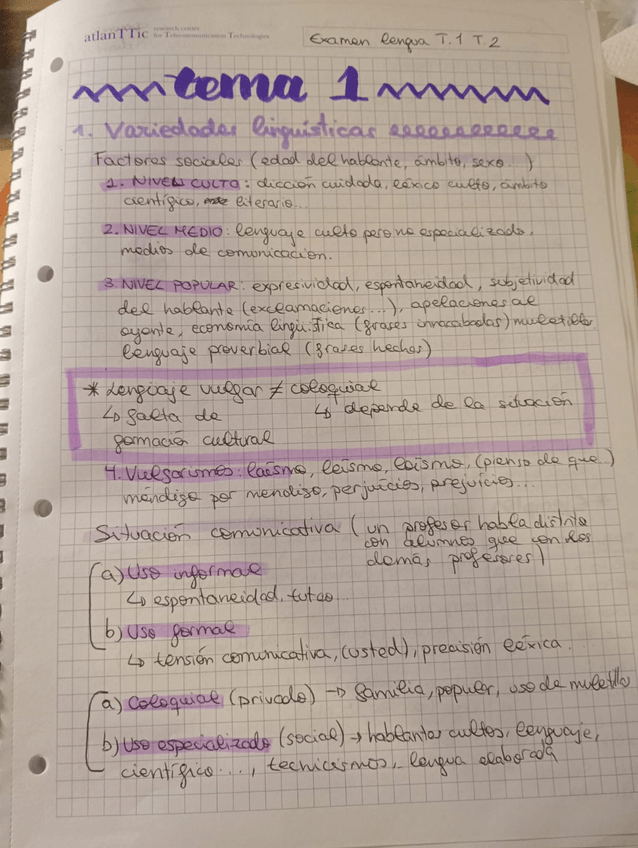 atlanTTic research center for Telecommunication Technologies
Examen lengua T.1 T.2
tema 1
1. Variedades lingüísticas
Factores sociales (edad del hablante, ámbito, sexo...)
1. NIVEL CULTO: dicción cuidada, léxico culto, ámbito
científico, literario...
2. NIVEL MEDIO: lenguaje culto pero no especializado,
medios de comunicación.
3. NIVEL POPULAR: expresividad, espontaneidad, subjetividad
del hablante (exclamaciones...), apelaciones al
oyente, economía lingüística (frases innacabadas) muletillas
lenguaje proverbial (frases hechas)
* Lenguaje vulgar ≠ coloquial
↳ falta de ↳ depende de la situación
formación cultural
4. Vulgarismos: laísmo, leísmo, loísmo, (pienso de que)
méndigo por mendigo, perjuicios, prejuicios...
Situación comunicativa (un profesor habla distinto
con alumnos que con los
demás profesores)
a) Uso informal
↳ espontaneidad, tuteo...
b) Uso formal
↳ tensión comunicativa, (usted), precisión léxica.
a) Coloquial (privado) → familia, popular, uso de muletilla
b) Uso especializado (social) → hablantes cultos, lenguaje,
científico..., tecnicismos, lengua elaborada